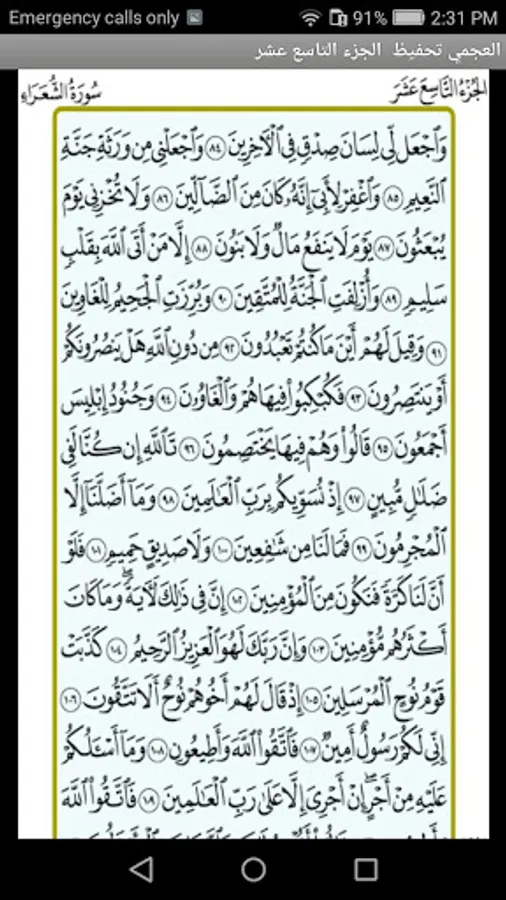 Emergency calls only 91% 2:31 PM
العجمي تحفيظ الجزء التاسع عشر
الجُزْءُ التَّاسِعَ عَشَرَ سُورَةُ الشُّعَرَاءِ
وَٱجْعَل لِّى لِسَانَ صِدْقٍ فِى ٱلْآخِرِينَ ٨٤ وَٱجْعَلْنِى مِن وَرَثَةِ جَنَّةِ
ٱلنَّعِيمِ ٨٥ وَٱغْفِرْ لِأَبِىٓ إِنَّهُۥ كَانَ مِنَ ٱلضَّآلِّينَ ٨٦ وَلَا تُخْزِنِى يَوْمَ
يُبْعَثُونَ ٨٧ يَوْمَ لَا يَنفَعُ مَالٌ وَلَا بَنُونَ ٨٨ إِلَّا مَنْ أَتَى ٱللَّهَ بِقَلْبٍ
سَلِيمٍ ٨٩ وَأُزْلِفَتِ ٱلْجَنَّةُ لِلْمُتَّقِينَ ٩٠ وَبُرِّزَتِ ٱلْجَحِيمُ لِلْغَاوِينَ
٩١ وَقِيلَ لَهُمْ أَيْنَ مَا كُنتُمْ تَعْبُدُونَ ٩٢ مِن دُونِ ٱللَّهِ هَلْ يَنصُرُونَكُمْ
أَوْ يَنتَصِرُونَ ٩٣ فَكُبْكِبُوا۟ فِيهَا هُمْ وَٱلْغَاوُۥنَ ٩٤ وَجُنُودُ إِبْلِيسَ
أَجْمَعُونَ ٩٥ قَالُوا۟ وَهُمْ فِيهَا يَخْتَصِمُونَ ٩٦ تَٱللَّهِ إِن كُنَّا لَفِى
ضَلَٰلٍ مُّبِينٍ ٩٧ إِذْ نُسَوِّيكُم بِرَبِّ ٱلْعَٰلَمِينَ ٩٨ وَمَآ أَضَلَّنَآ إِلَّا
ٱلْمُجْرِمُونَ ٩٩ فَمَا لَنَا مِن شَٰفِعِينَ ١٠٠ وَلَا صَدِيقٍ حَمِيمٍ ١٠١ فَلَوْ
أَنَّ لَنَا كَرَّةً فَنَكُونَ مِنَ ٱلْمُؤْمِنِينَ ١٠٢ إِنَّ فِى ذَٰلِكَ لَآيَةً ۖ وَمَا كَانَ
أَكْثَرُهُم مُّؤْمِنِينَ ١٠٣ وَإِنَّ رَبَّكَ لَهُوَ ٱلْعَزِيزُ ٱلرَّحِيمُ ١٠٤ كَذَّبَتْ
قَوْمُ نُوحٍ ٱلْمُرْسَلِينَ ١٠٥ إِذْ قَالَ لَهُمْ أَخُوهُمْ نُوحٌ أَلَا تَتَّقُونَ ١٠٦
إِنِّى لَكُمْ رَسُولٌ أَمِينٌ ١٠٧ فَٱتَّقُوا۟ ٱللَّهَ وَأَطِيعُونِ ١٠٨ وَمَآ أَسْـَٔلُكُمْ
عَلَيْهِ مِنْ أَجْرٍ ۖ إِنْ أَجْرِىَ إِلَّا عَلَىٰ رَبِّ ٱلْعَٰلَمِينَ ١٠٩ فَٱتَّقُوا۟ ٱللَّهَ